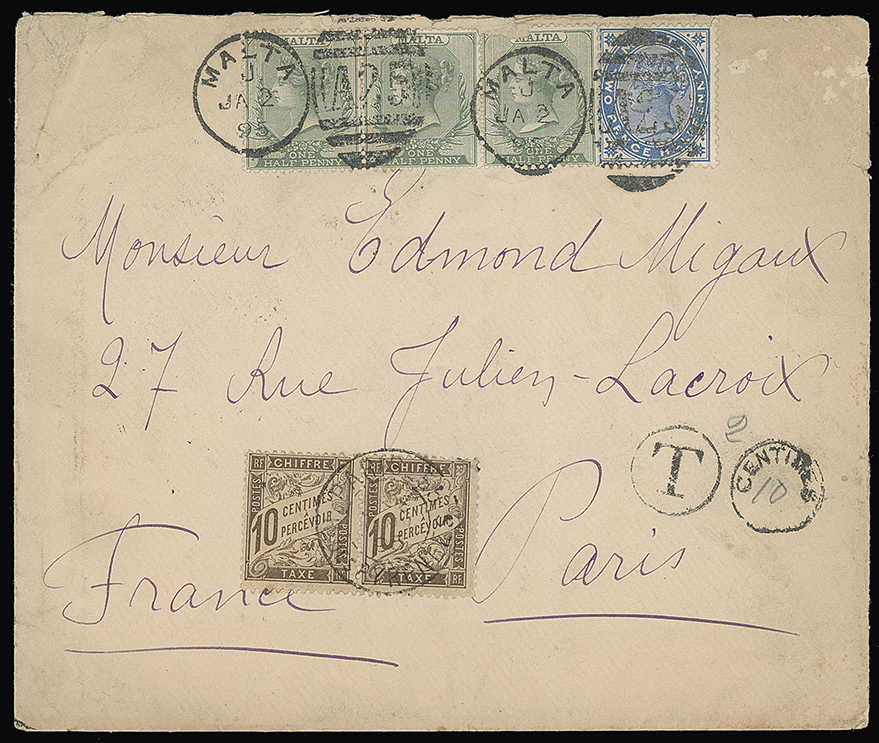 MALTA
J
JA 2
95
A25
MALTA
ONE
HALF PENNY
MALTA
ONE
HALF PENNY
MALTA
J
JA 2
MALTA
ONE
HALF PENNY
TWO PENCE HALFPENNY
Monsieur Edmond Migaux
27 Rue Julien-Lacroix
T
2
CENTIMES
10
RF CHIFFRE
POSTES
10 CENTIMES
À
PERCEVOIR
POSTES
TAXE RF
RF CHIFFRE
POSTES
10 CENTIMES
À
PERCEVOIR
POSTES
TAXE RF
Paris
France